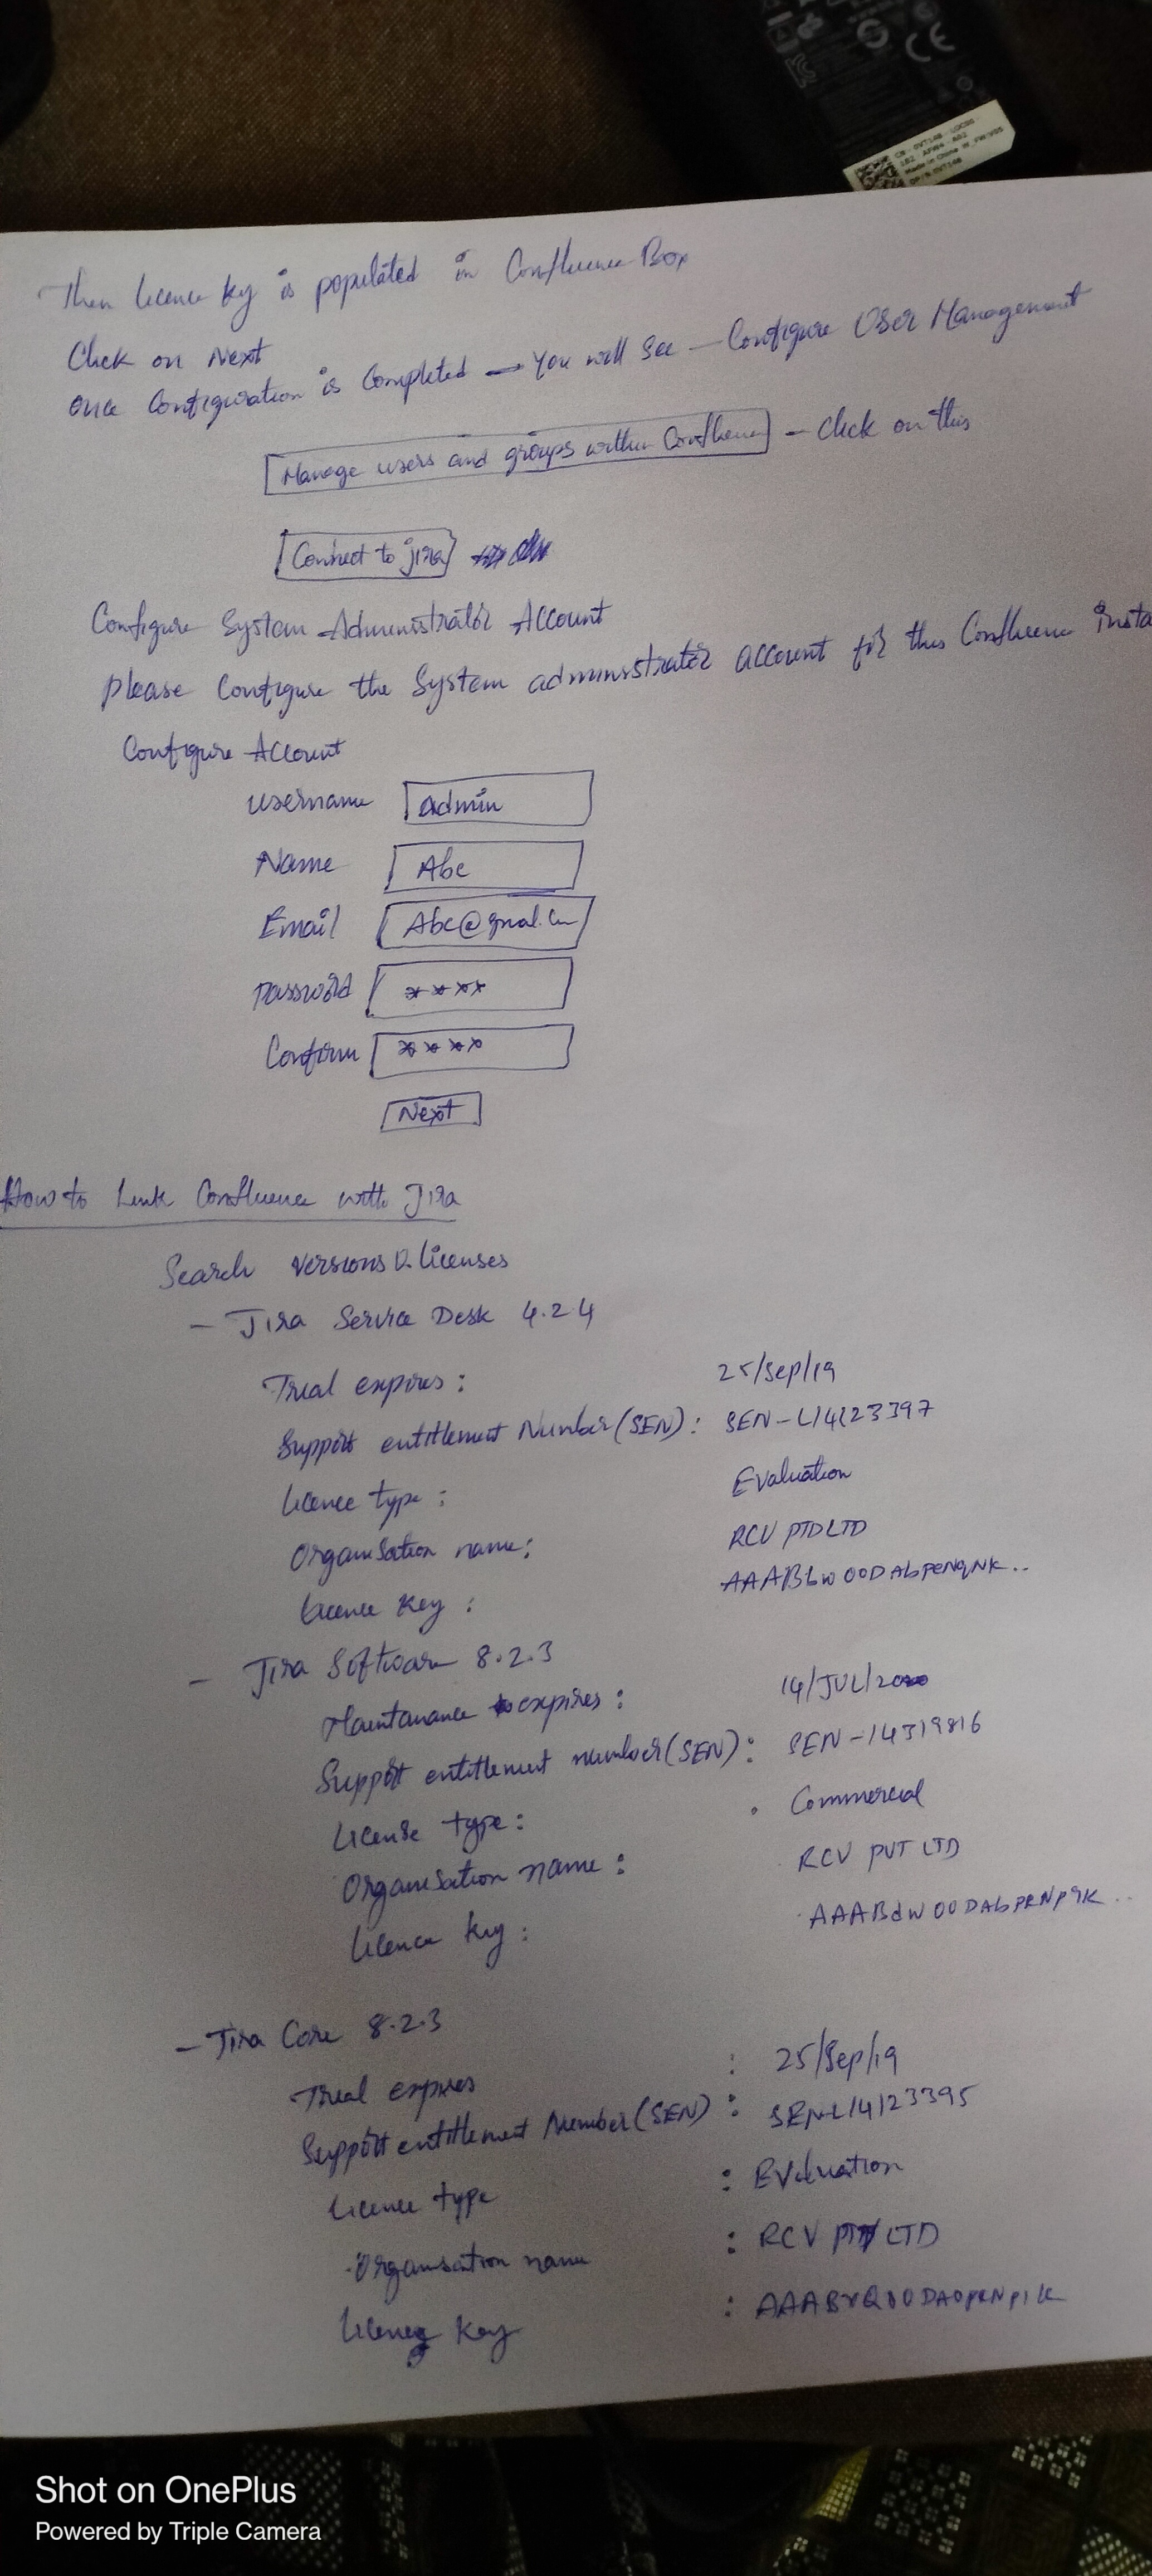 Made in China
Then licence key is populated in Confluence Box
Click on Next
once Configuration is Completed — You will See — Configure User Management
Manage users and groups within Confluence — Click on this
Connect to jira
Configure System Administrator Account
please Configure the System administrator account for this Confluence insta
Configure Account
username admin
Name Abc
Email Abc@gmal.com
password ****
Confirm ****
Next
How to Link Confluence with Jira
Search versions & licenses
— Jira Service Desk 4.2.4
Trial expires : 25/Sep/19
Support entitlement Number (SEN) : SEN-L14123397
licence type : Evaluation
Organisation name : RCV PTD LTD
licence key :
— Jira Software 8.2.3
Maintanance expires : 14/JUL/2020
Support entitlement number (SEN) : SEN-14319816
License type : Commercial
Organisation name : RCV PVT LTD
licence key :
— Jira Core 8.2.3
Trial expires : 25/Sep/19
Support entitlement Number (SEN) : SEN-L14123395
licence type : Evaluation
Organisation name : RCV LTD
licence key :
Shot on OnePlus
Powered by Triple Camera